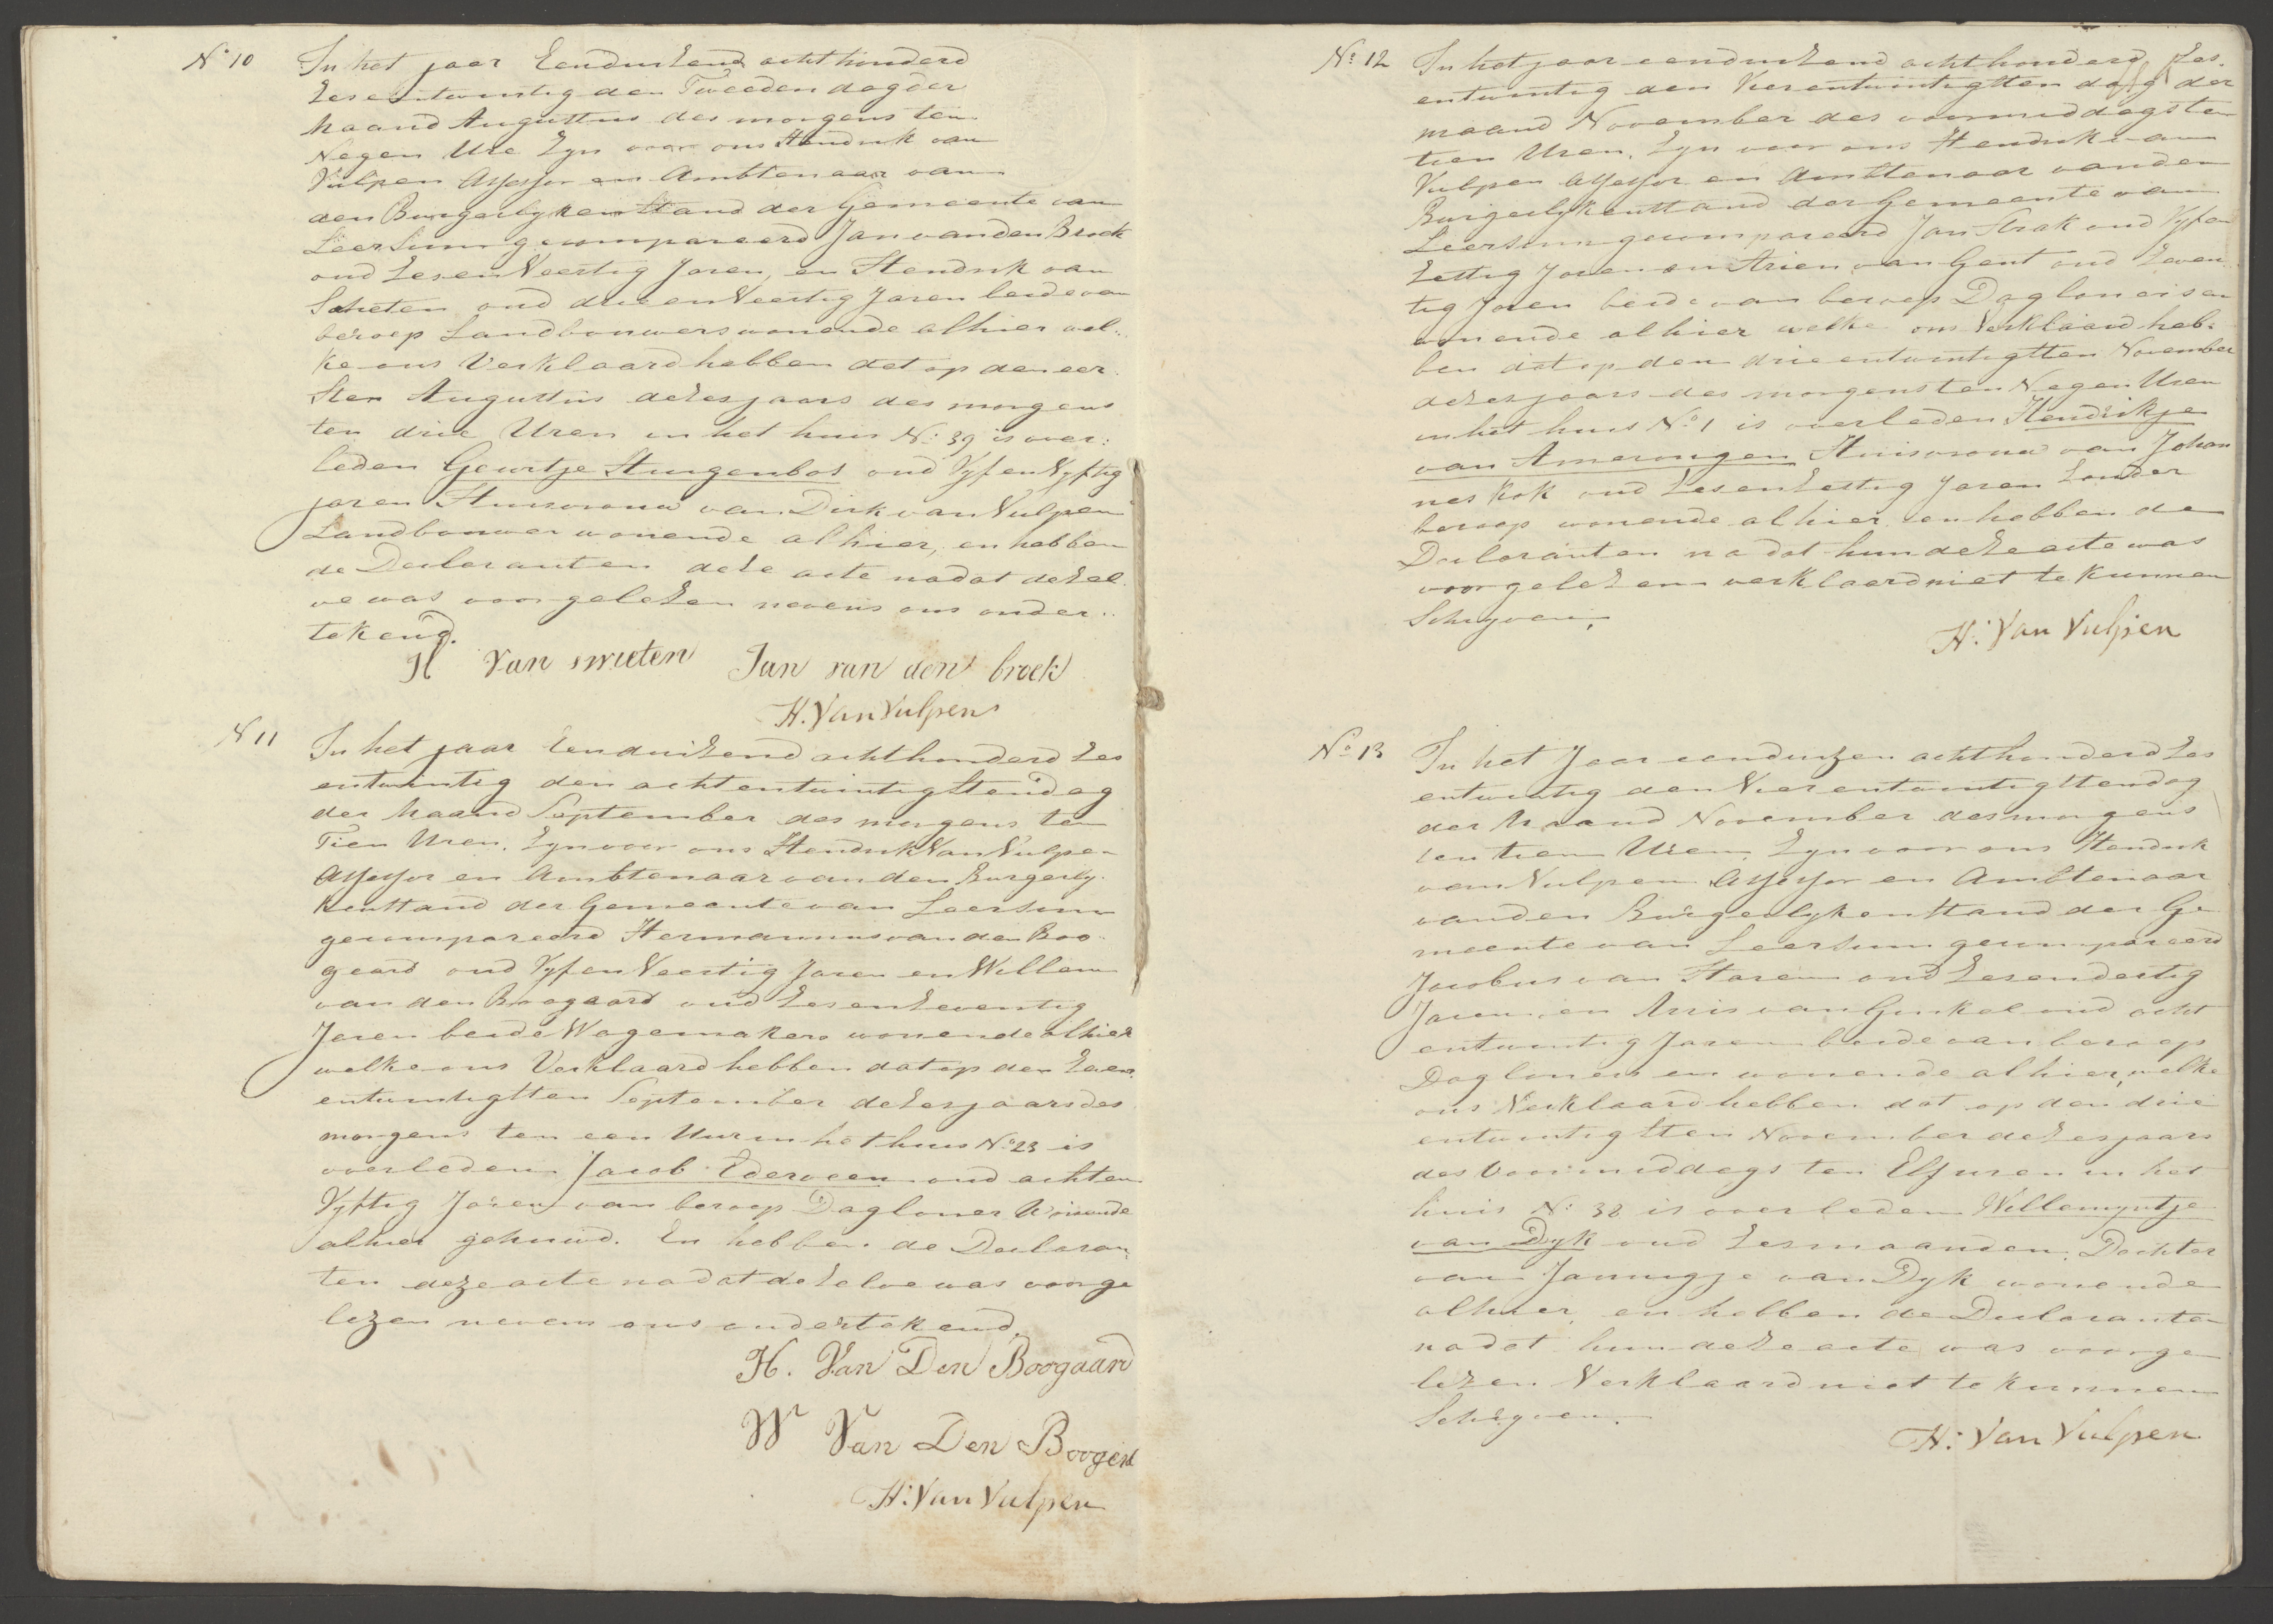 N° 10
In het jaar Eenduizend acht honderd
zes entwintig den Tweeden dag der
Maand Augustus des morgens ten
Negen Ure Zyn voor ons Hendrik van
Vulpen Assessor en Ambtenaar van
den Burgerlyken Stand der Gemeente van
Leersum gecompareerd Jan van den Broek
oud zes en Veertig Jaren, en Hendrik van
oud drie en Veertig Jaren beide van
beroep Landbouwers wonende alhier wel:
ke ons Verklaard hebben dat op den eer:
sten Augustus dezes jaars des morgens
ten drie Uren in het huis N: 39 is over:
leden Geurtje Hurgenbos oud Vyf en Vyftig
jaren Huisvrouw van Dirk van Vulpen
Landbouwer wonende alhier, en hebben
de Declaranten deze acte nadat dezel
ve was voorgelezen nevens ons onder:
tekend.
H Van swieten Jan van den broek
H. Van Vulpen
N 11
In het jaar Eenduizend achthonderd zes
entwintig den achtentwintigsten dag
der Maand September des morgens ten
Tien Uren, Zyn voor ons Hendrik Van Vulpen
Assessor en Ambtenaar van den Burgerly
kenstand der Gemeente van Leersum
gecompareerd Hermannus van den Boo
gaard oud Vyf en Veertig Jaren en Willem
van den Boogaard oud zes en zeventig
Jaren beide Wagemakers wonende alhier
welke ons Verklaard hebben dat op den zeven
entwintigsten September dezes jaars des
morgens ten een Uur in het huis N° 23 is
overleden Jacob Ederveen oud achten
Vyftig Jaren van beroep Dagloner Wonende
alhier gehuwd. En hebben de Declaran
ten deze acte nadat dezelve was voorge
lezen nevens ons ondertekend
H. Van Den Boogaard
W Van Den Boogerd
H: Van Vulpen
N° 12
In het jaar eenduizend acht honderd zes.
entwintig den Vierentwintigsten dag der
maand November des voormiddags ten
tien Uren, Zyn voor ons Hendrik van
Vulpen Assessor en Ambtenaar van den
Burgerlykenstand der Gemeente van
Leersum gecompareerd Jan Strak oud Vyf en
zestig Jaren en Arien van Gent oud zeven
tig Jaren beide van beroep Dagloners en
wonende alhier welke ons Verklaard heb:
ben dat op den drieentwintigsten November
dezes jaars des morgens ten Negen Uren
in het huis N° 1 is overleden Hendrikje
van Amerongen Huisvrouw van Johan
nes Kok oud zes en zestig Jaren zonder
beroep wonende alhier en hebben de
Declaranten na dat hun deze acte was
voorgelezen verklaard niet te kunnen
Schryven,
H: Van Vulpen
N° 13
In het Jaar eenduizen achthonderd zes
entwintig den Vierentwintigsten dag
der Maand November des morgens
ten tien Uren, Zyn voor ons Hendrik
van Vulpen Assessor en Ambtenaar
van den Burgerlykenstand der Ge
meente van Leersum gecompareerd
Jacobus van Haren oud zes en dertig
Jaren en Arris van Ginkel oud acht
entwintig Jaren beide van beroep
Dagloners en wonende alhier, welke
ons Verklaard hebben dat op den drie
entwintigsten November dezes jaars
des Voormiddags ten Elf uren in het
huis N: 38 is overleden Willemyntje
van Dyk oud zes maanden, Dochter
van Jannigje van Dyk wonende
alhier, en hebben de Declaranten
nadat hun deze acte was voorge
lezen Verklaard niet te kunnen
Schryven.
H: Van Vulpen